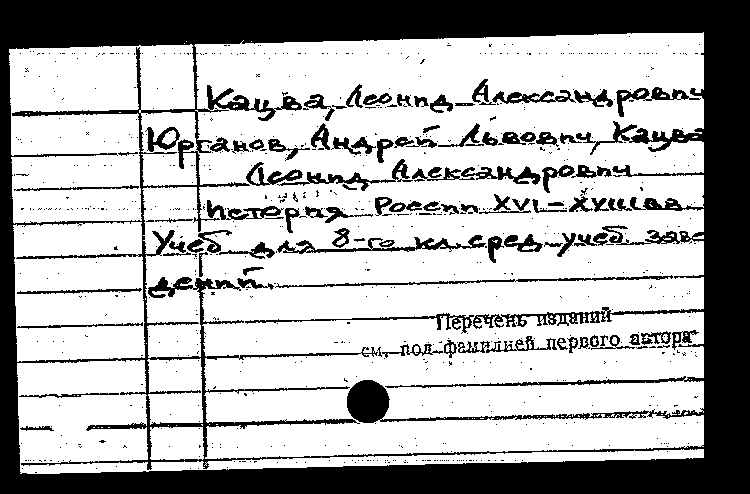 Кацва, Леонид Александрович
Юрганов, Андрей Львович, Кацва
Леонид Александрович
История России XVI – XVIII вв
Учеб для 8-го кл. сред. учеб. заве-
дений.
Перечень изданий
см. под фамилией первого автора